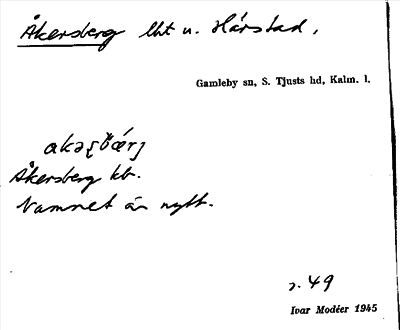 Åkersberg lht u. Hårstad,
Gamleby sn, S. Tjusts hd, Kalm. l.
Åkersberg kb.
Namnet är nytt.
s. 49
Ivar Modéer 1945